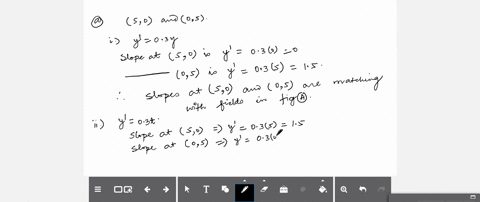 a (5,0) and (0,5).
i) y' = 0.3y
Slope at (5,0) is y' = 0.3(0) = 0
——— (0,5) is y' = 0.3(5) = 1.5.
∴ Slopes at (5,0) and (0,5) are matching
with fields in fig A.
ii) y' = 0.3t.
Slope at (5,0) => y' = 0.3(5) = 1.5
Slope at (0,5) => y' = 0.3(0